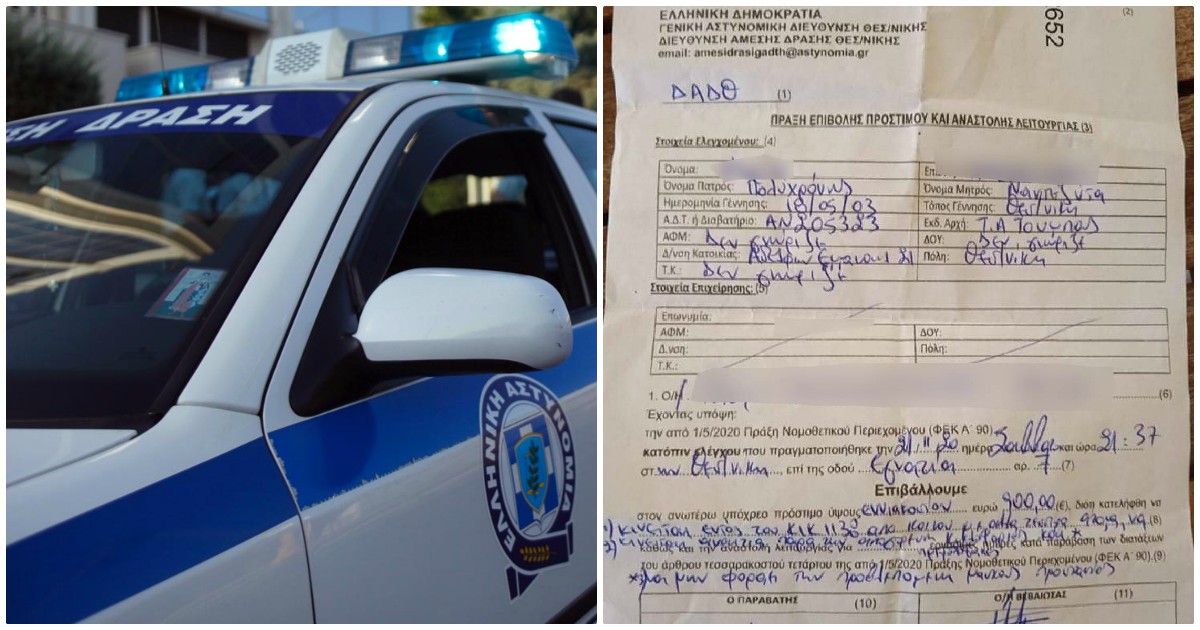 ΣΗ ΔΡΑΣΗ
ΕΛΛΗΝΙΚΗ ΑΣΤΥΝΟΜΙΑ
ΕΛΛΗΝΙΚΗ ΔΗΜΟΚΡΑΤΙΑ
(2)
ΓΕΝΙΚΗ ΑΣΤΥΝΟΜΙΚΗ ΔΙΕΥΘΥΝΣΗ ΘΕΣ/ΝΙΚΗΣ
ΔΙΕΥΘΥΝΣΗ ΑΜΕΣΗΣ ΔΡΑΣΗΣ ΘΕΣ/ΝΙΚΗΣ
email: amesidrasigadth@astynomia.gr
652
ΔΑΔΘ (1)
ΠΡΑΞΗ ΕΠΙΒΟΛΗΣ ΠΡΟΣΤΙΜΟΥ ΚΑΙ ΑΝΑΣΤΟΛΗΣ ΛΕΙΤΟΥΡΓΙΑΣ (3)
Στοιχεία Ελεγχομένου: (4)
Όνομα:
Όνομα Πατρός: Πολυχρόνης Όνομα Μητρός:
Ημερομηνία Γέννησης: 18/05/03 Τόπος Γέννησης: Θεσ/νίκη
Α.Δ.Τ. ή Διαβατήριο: ΑΝ205323 Εκδ. Αρχή: Τ.Α Τούμπας
ΑΦΜ: Δεν γνωρίζει ΔΟΥ: Δεν γνωρίζει
Δ/νση Κατοικίας: 21 Πόλη: Θεσ/νίκη
Τ.Κ.: Δεν γνωρίζει
Στοιχεία Επιχείρησης: (5)
Επωνυμία:
ΑΦΜ: ΔΟΥ:
Δ.νση: Πόλη:
Τ.Κ.:
1. Ο/Η (6)
Έχοντας υπόψη:
την από 1/5/2020 Πράξη Νομοθετικού Περιεχομένου (ΦΕΚ Α΄ 90)
κατόπιν ελέγχου που πραγματοποιήθηκε την 21/11/20 ημέρα Σάββατο και ώρα 21:37
στ.ην Θεσ/νίκη, επί της οδού Εγνατία αρ. 7 (7)
Επιβάλλουμε
στον ανωτέρω υπόχρεο πρόστιμο ύψους εννιακοσίων ευρώ 900,00 (€), διότι κατελήφθη να
(8)
καθώς και την αναστολή λειτουργίας για ημέρες κατά παράβαση των διατάξεων
του άρθρου τεσσαρακοστού τετάρτου της από 1/5/2020 Πράξης Νομοθετικού Περιεχομένου (ΦΕΚ Α΄ 90).(9)
Ο ΠΑΡΑΒΑΤΗΣ (10) Ο/Η ΒΕΒΑΙΩΣΑΣ (11)